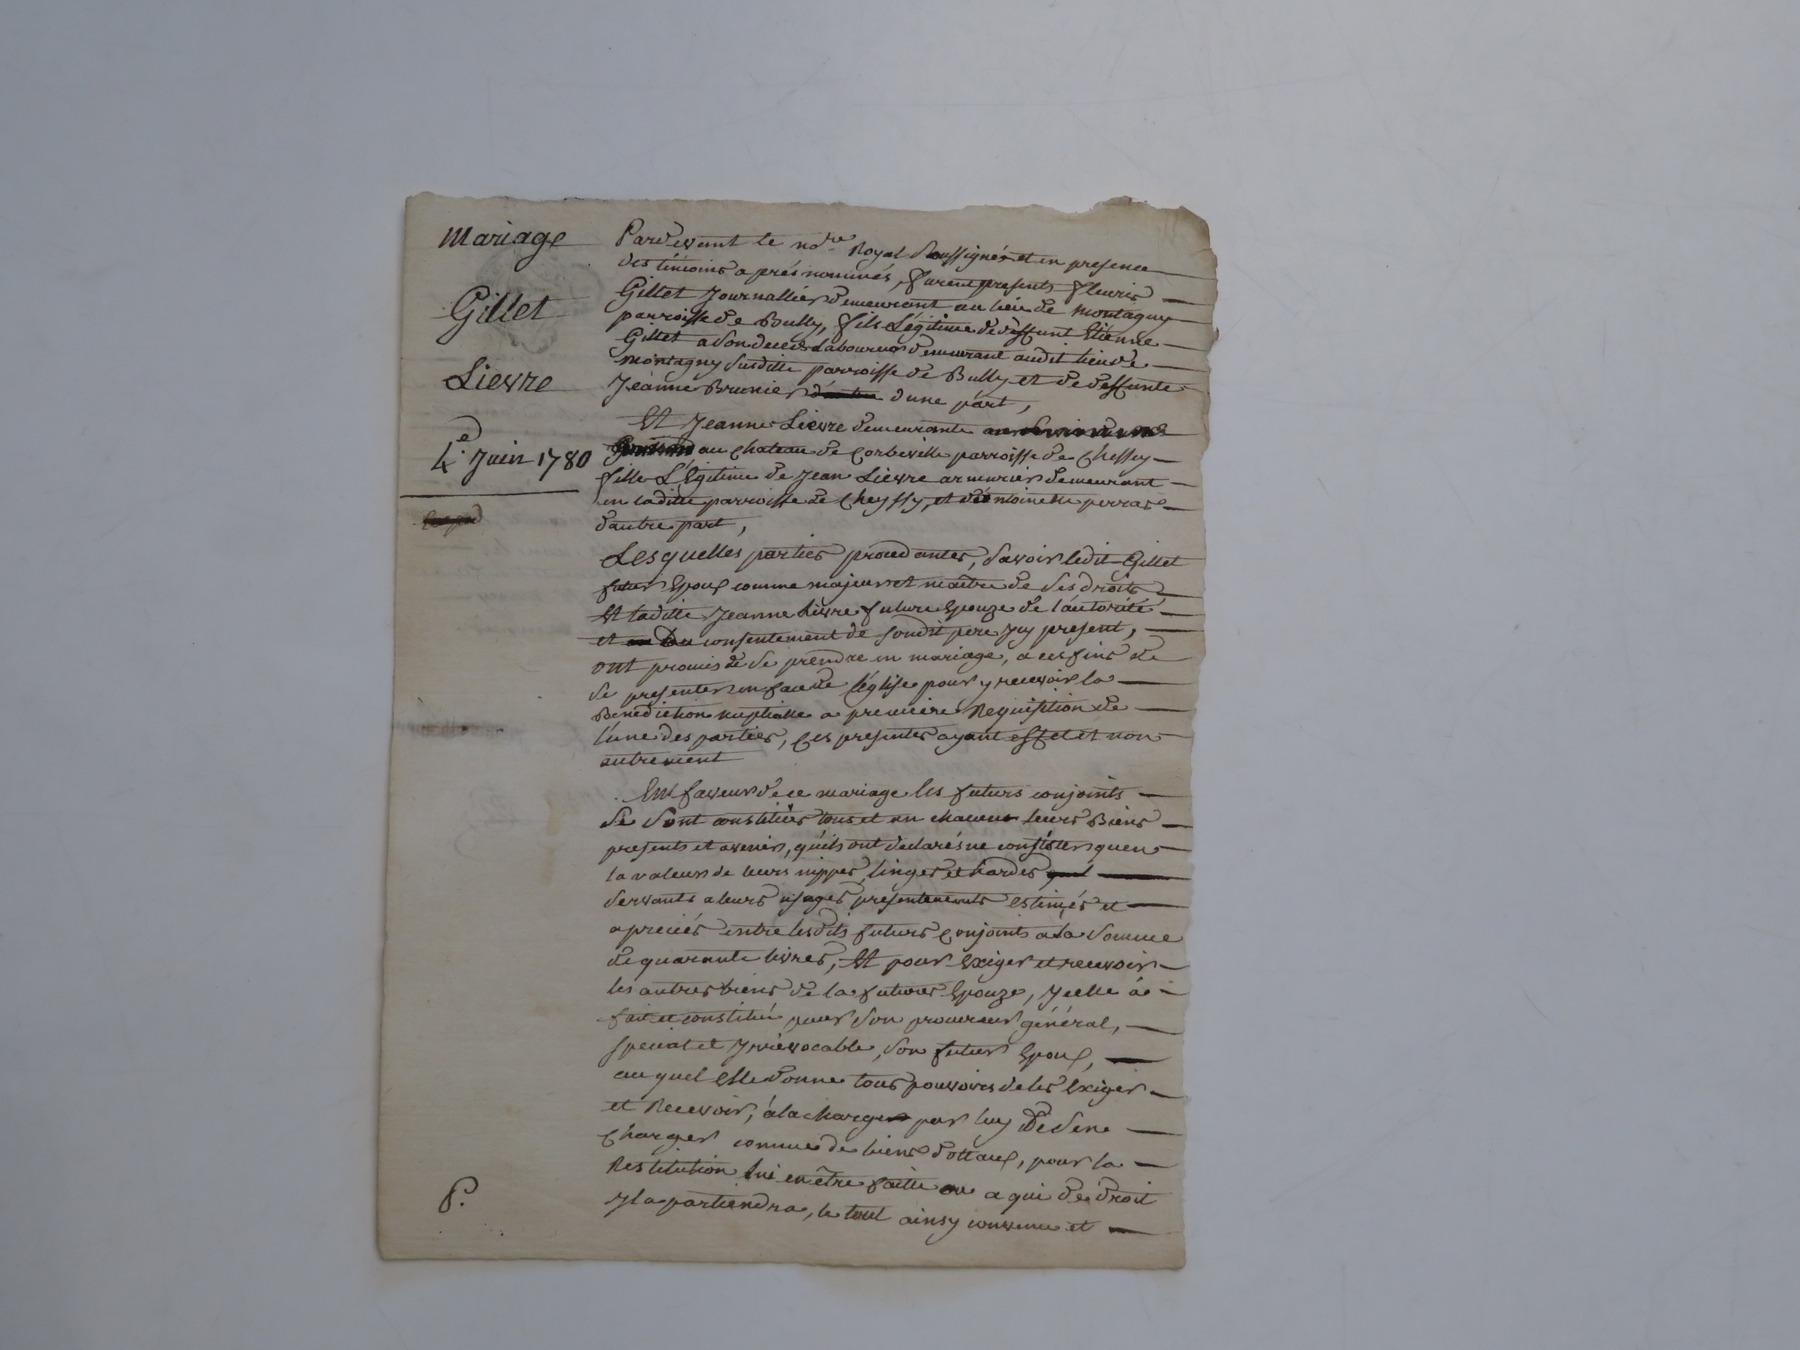 Mariage
Gillet
Lievre
4.e Juin 1780
Pardevant le no.re Royal Soussigné et en presence
des témoins aprés nommés, furent presents fleuris
Gillet Journallier demeurant au lieu de montagny
parroisse de Bully, fils Légitime de deffunt Etienne
Gillet a son decés Laboureur demeurant audit lieu de
montagny Susditte parroisse de Bully et de deffunte
Jeanne Brunier d'une part,
Et Jeanne Lievre demeurante
au chateau de Corbeville parroisse de Chessy
fille Légitime de Jean Lievre armurier demeurant
en laditte parroisse de Cheyssy, et d'éntoinette perras
d'autre part,
Lesquelles parties procedantes, Savoir ledit Gillet
futur Epoux comme majeur et maître de Ses droits
Et laditte Jeanne Lievre future Epouze de l'autorité
et du consentement de Sondit pere Jcy present,
ont promis de Se prendre en mariage, a ces fins de
Se presenter en face de l'église pour y recevoir la
Benediction nuptialle a premiere Requisition de
l'une des parties, ces presentes ayant effet et non
autrement
En faveur de ce mariage les futurs conjoints
Se Sont constitués tous et un chacun leurs Biens
presents et avenir, qu'ils ont declarés ne consister qu'en
la valeur de leurs nippes, linges et hardes
Servants a leurs usages presentements estimés et
apreciés entre lesdits futurs conjoints a la Somme
de quarante livres, Et pour Exiger et recevoir
les autres biens de la future Epouze, Jcelle a
fait et constitué pour Son procureur général,
special et Jrrévocable, Son futur Epoux,
au quel elle donne tous pouvoirs de les Exiger
et Recevoir, à la charge par luy De S'en
Charger comme de biens dottaux, pour la
Restitution lui en être faitte ou a qui de droit
Jl apartiendra, le tout ainsy convenu et
P.